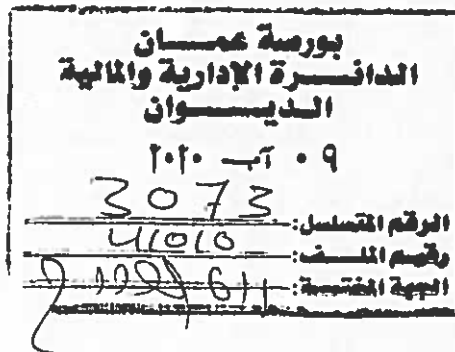 بورصة عمان
الدائرة الإدارية والمالية
الديوان
٠٩ آب ٢٠٢٠
الرقم المتسلسل: 3073
رقم الملف:
الجهة المختصة: